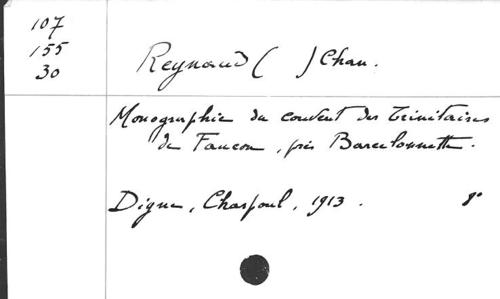 107
155
30
Reynaud ( ) Chan.
Monographie du couvent des Trinitaires
de Faucon, près Barcelonnette.
Digne, Chaspoul, 1913. 8°